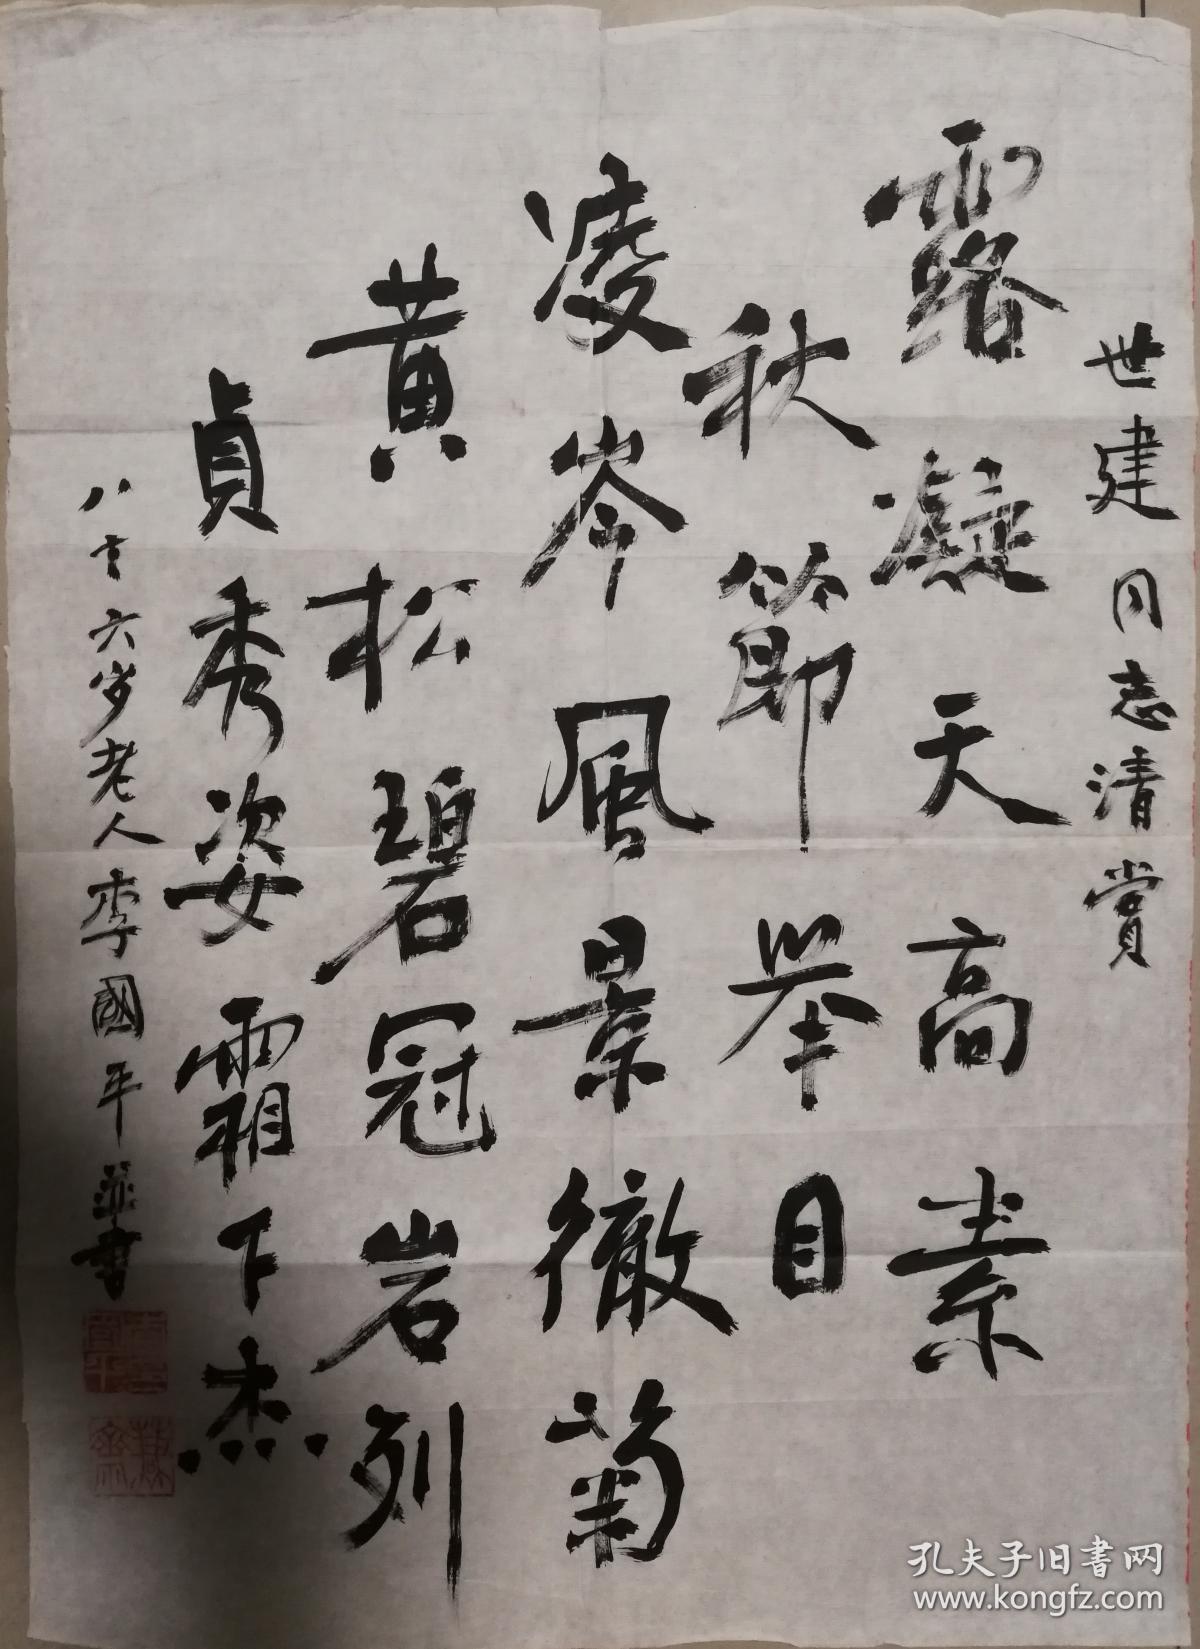 世建同志清赏
露凝天高素
秋節举目
凌岑風景徹菊
黄松碧冠岩列
貞秀姿霜下杰
八十六岁老人李國平并书
孔夫子旧書网
www.kongfz.com